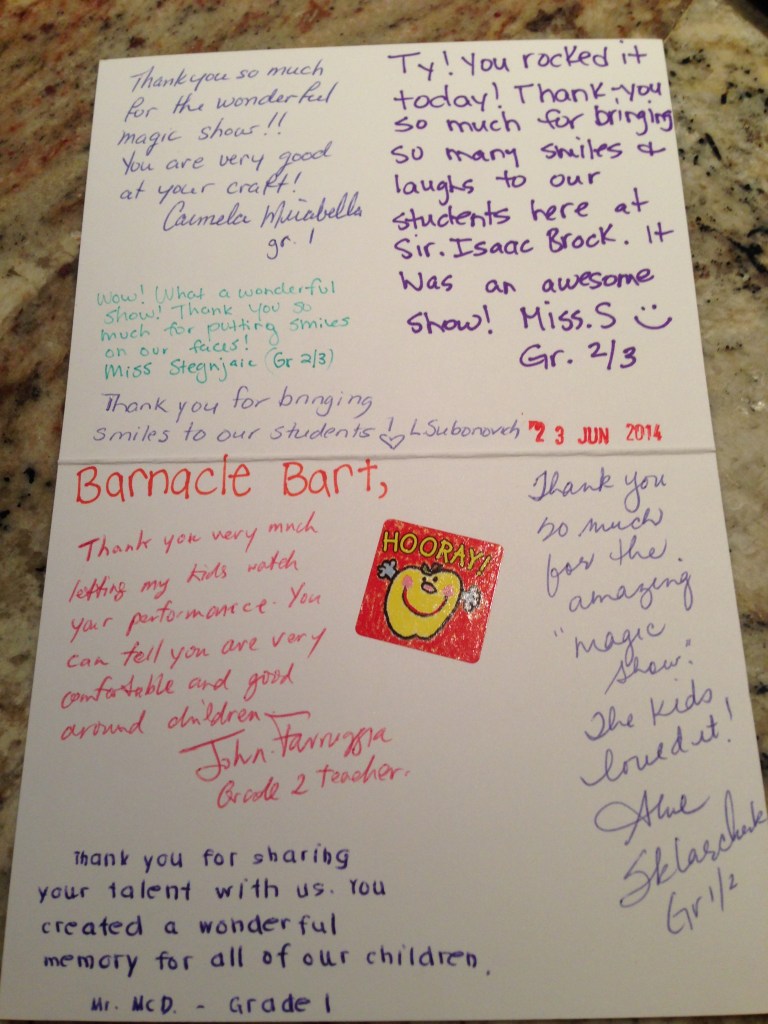 Thank you so much
for the wonderful
magic show!!
You are very good
at your craft!
Carmela Mirabella
gr. 1
Ty! You rocked it
today! Thank-you
so much for bringing
so many smiles &
laughs to our
students here at
Sir. Isaac Brock. It
was an awesome
show! Miss. S
Gr. 2/3
Wow! What a wonderful
show! Thank you so
much for putting smiles
on our faces!
Miss Stegnjaic (Gr 2/3)
Thank you for bringing
smiles to our students! L. Subonovich
23 JUN 2014
Barnacle Bart,
Thank you very much
letting my kids watch
your performance. You
can tell you are very
comfortable and good
around children.
John Farruggia
Grade 2 teacher.
HOORAY!
Thank you
so much
for the
amazing
"magic
show."
The kids
loved it!
Gr 1/2
Thank you for sharing
your talent with us. You
created a wonderful
memory for all of our children.
Mr. McD. - Grade 1